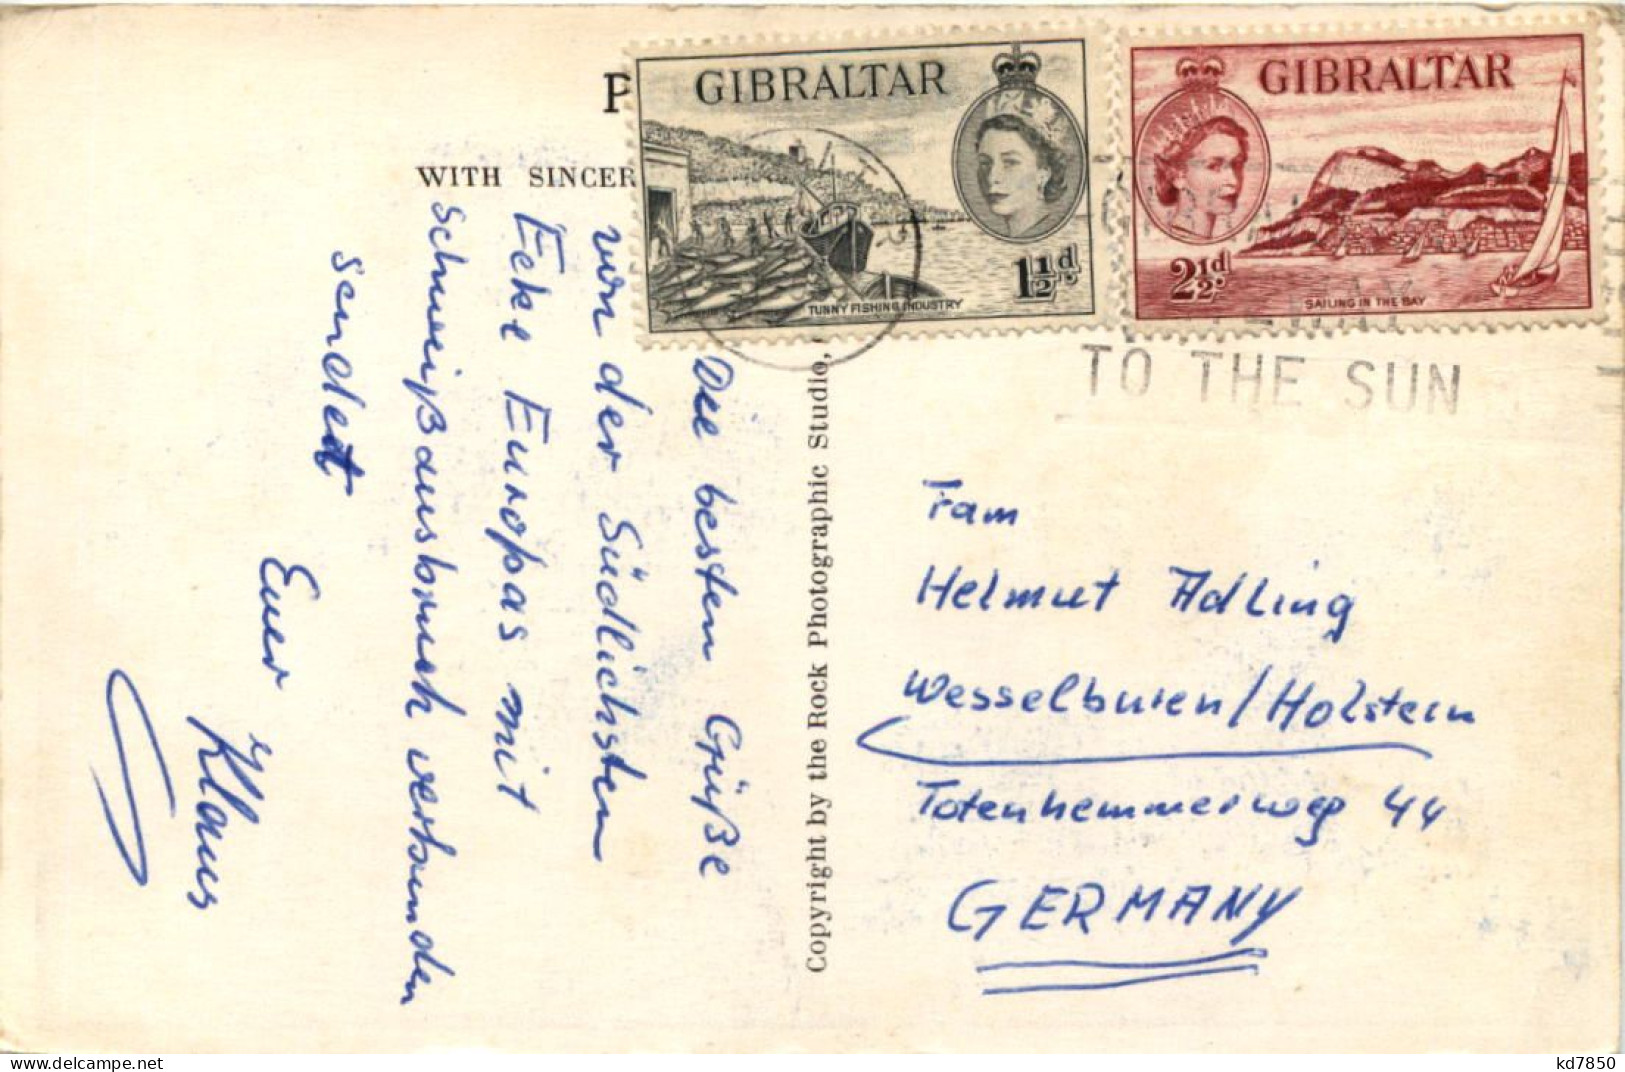 GIBRALTAR
TUNNY FISHING INDUSTRY
1½d
GIBRALTAR
2½d
SAILING IN THE BAY
TO THE SUN
WITH SINCER
Die besten Grüße
von der Südlichsten
Ecke Europas mit
Schweißausbruch verbunden
sendet
Euer
Klaus
Copyright by the Rock Photographic Studio,
Fam
Helmut Adling
Wesselburen/Holstein
Totenhemmerweg 44
GERMANY
www.delcampe.net
kd7850